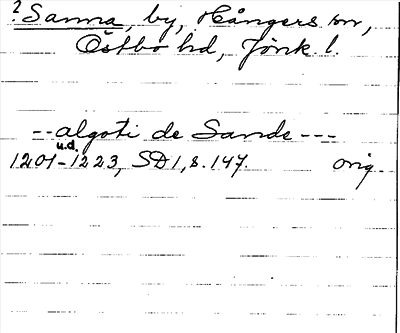 ? Sanna, by, Hångers sn,
Östbo hd, Jönk l.
-- algoti de Sande ---
u.d.
1201-1223, SD 1, s. 147. orig.